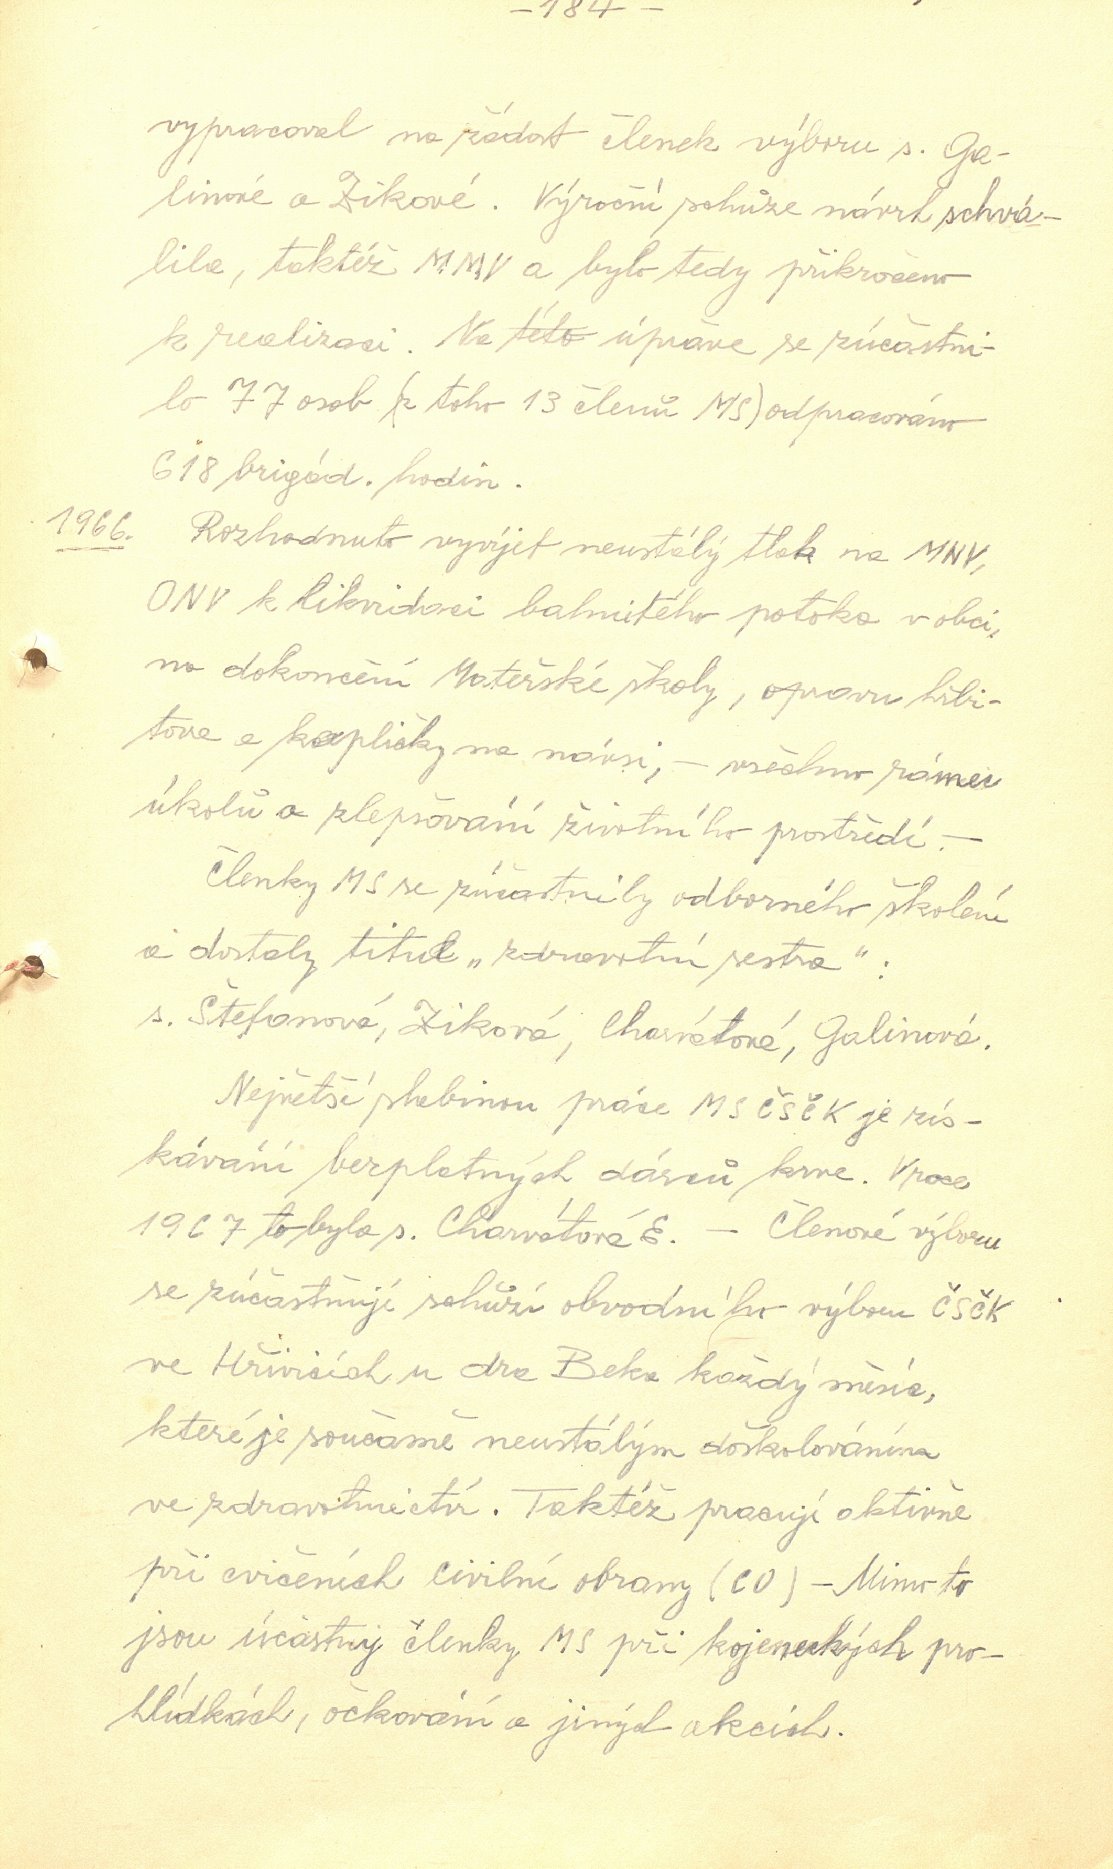 -184-
vypracoval na žádost členek výboru s. Ga-
linové a Zikové. Výroční schůze návrh schvá-
lila, taktéž MNV a bylo tedy přikročeno
k realizaci. Na této úpravě se zúčastni-
lo 77 osob (z toho 13 členů MS) odpracováno
618 brigád. hodin.
1966. Rozhodnuto vyvíjet neustálý tlak na MNV,
ONV k likvidaci bahnitého potoka v obci,
na dokončení Mateřské školy, opravu hřbi-
tova a kapličky na návsi, - všechno rámec
úkolů a zlepšování životního prostředí. -
Členky MS se zúčastnily odborného školení
a dostaly titul „zdravotní sestra":
s. Štefanová, Ziková, Charvátová, Galinová.
Největší slabinou práce MS ČSČK je zís-
kávání bezplatných dárců krve. V roce
1967 to byla s. Charvátová E. - Členové výboru
se zúčastňují schůzí obvodního výboru ČSČK
ve Hřivicích u dra Beka každý měsíc,
které je současně neustálým doškolováním
ve zdravotnictví. Taktéž pracují aktivně
při cvičeních civilní obrany (CO) - Mimo to
jsou účastny členky MS při kojeneckých pro-
hlídkách, očkování a jiných akcích.